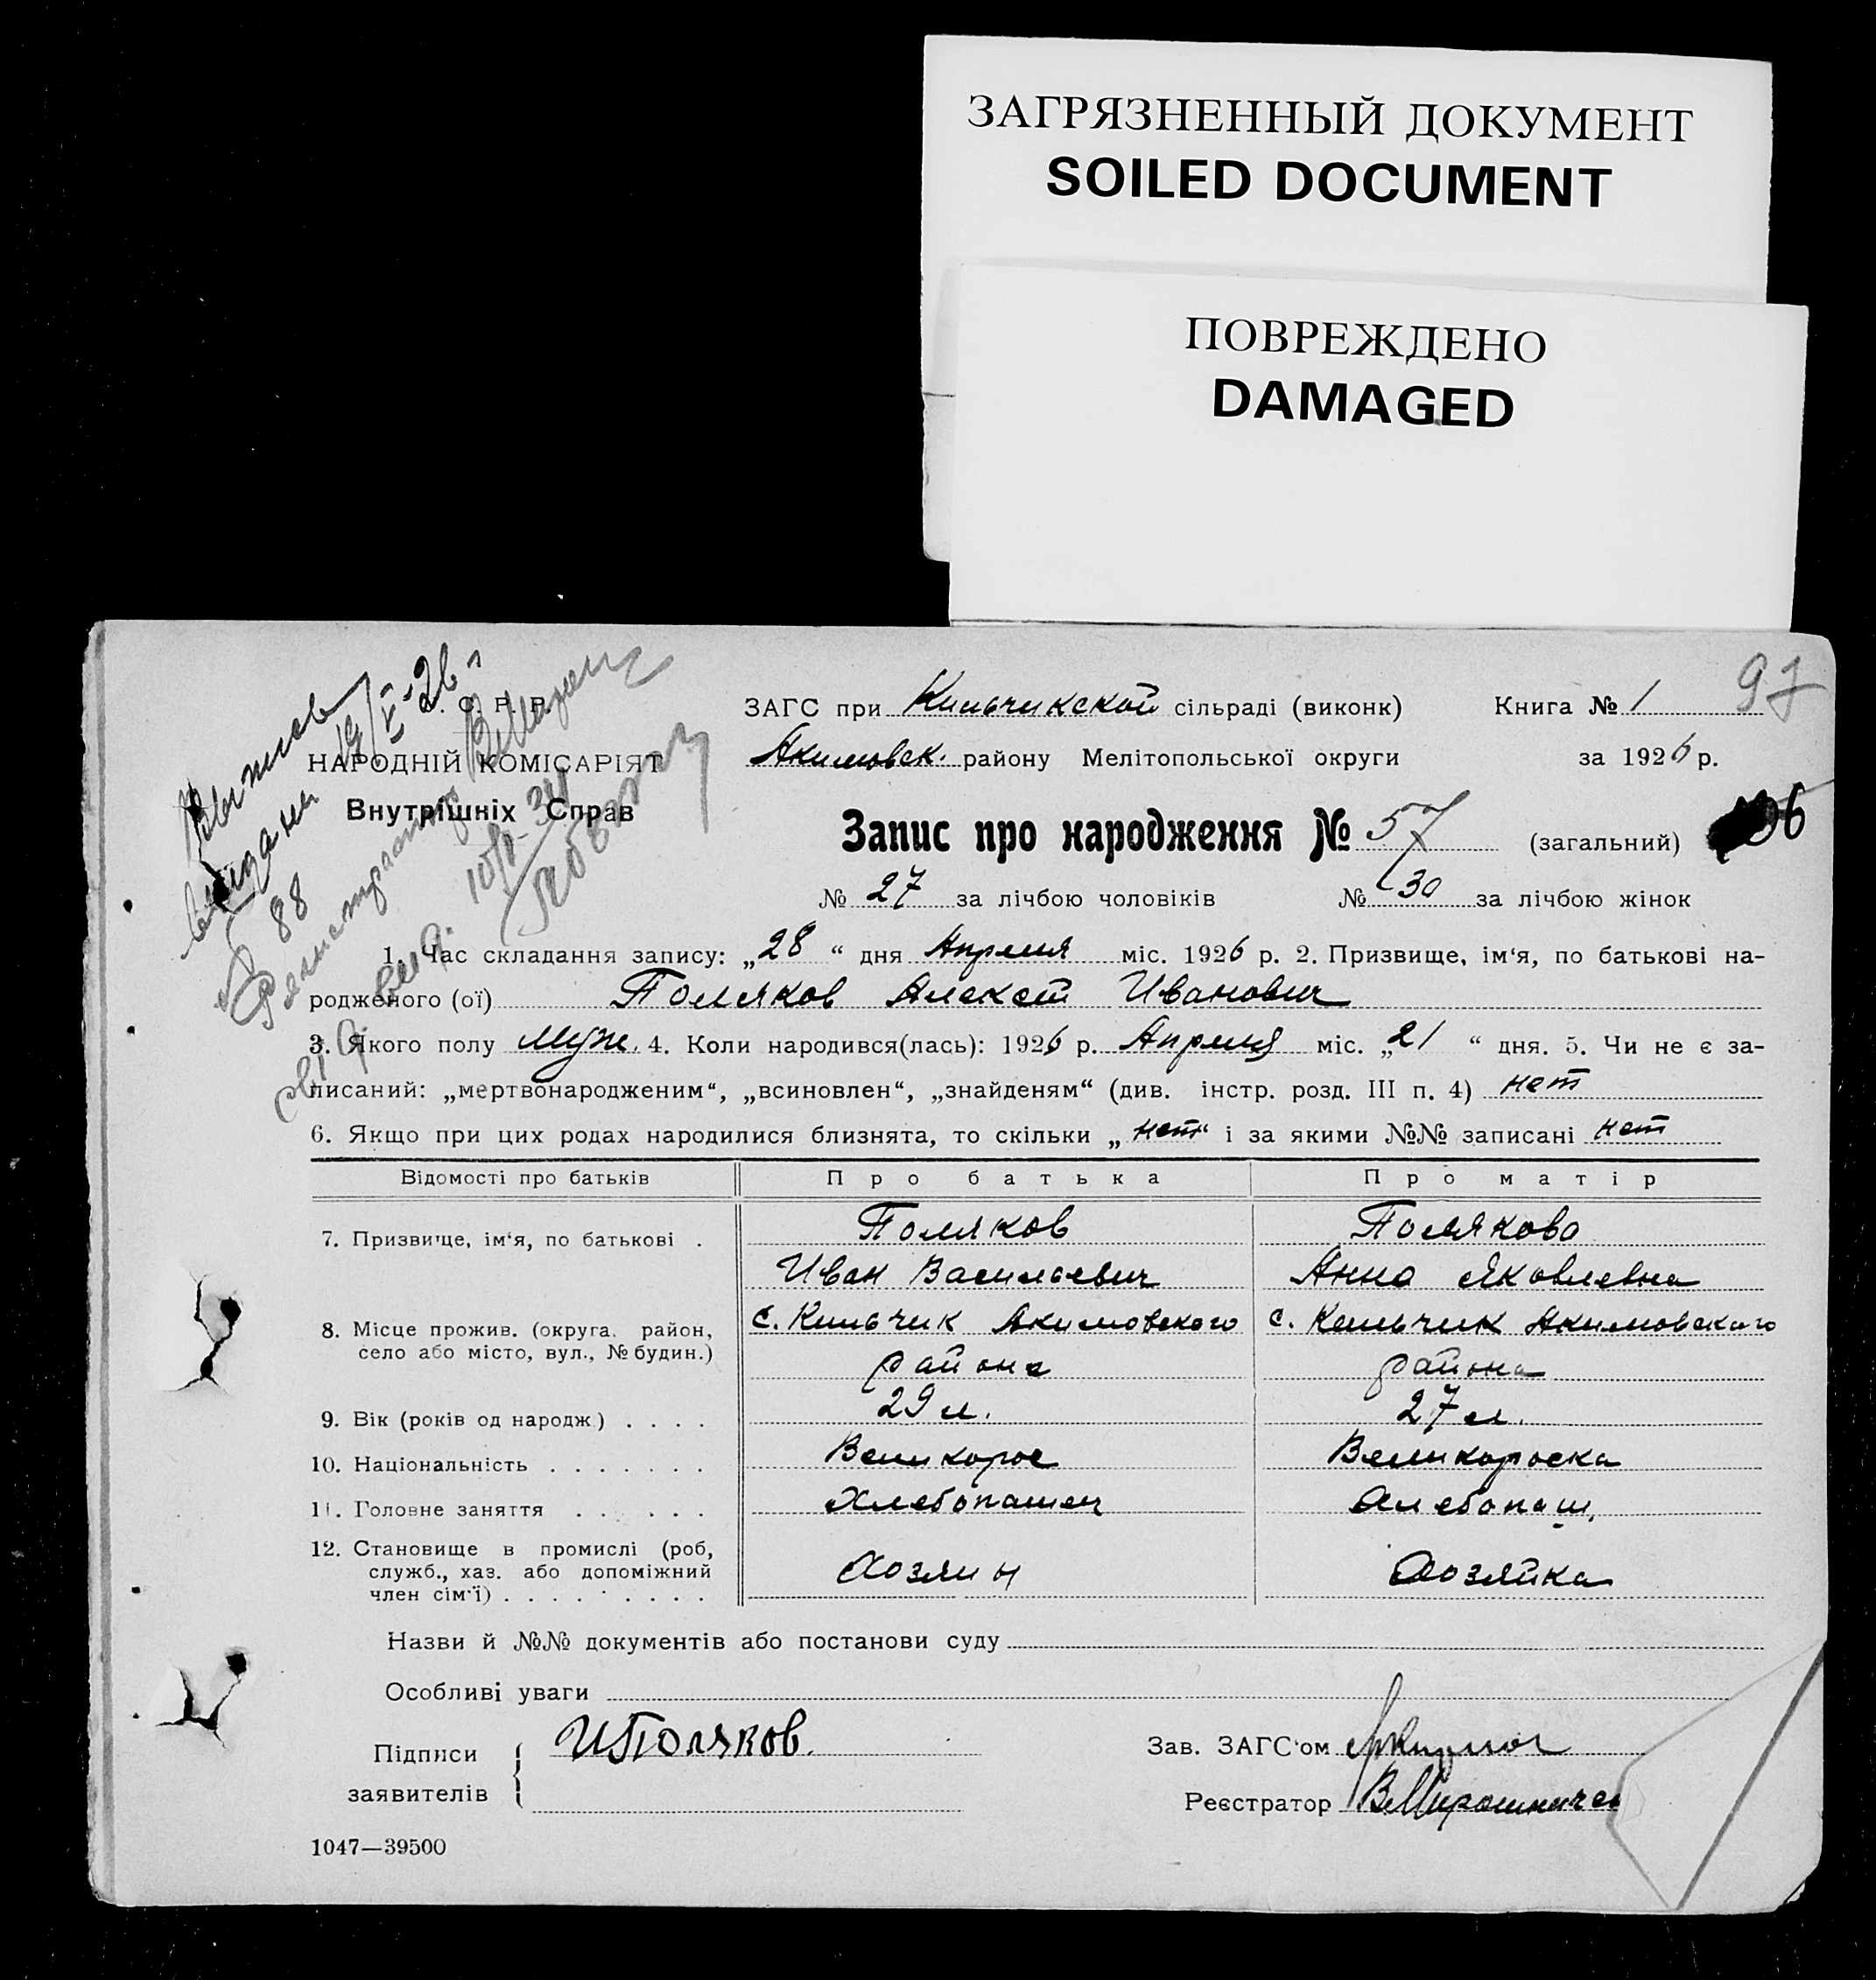 ЗАГРЯЗНЕННЫЙ ДОКУМЕНТ
SOILED DOCUMENT
ПОВРЕЖДЕНО
DAMAGED
97
Выпись
выдана 19/V-26 г
№ 88
Регистратор
10/
. С. Р. Р.
НАРОДНІЙ КОМІСАРІЯТ
Внутрішніх Справ
ЗАГС при Кильчикской сільраді (виконк) Книга № 1
Акимовск. району Мелітопольської округи за 1926 р.
Запис про народження № 57 (загальний) 96
№ 27 за лічбою чоловіків № 30 за лічбою жінок
1. Час складання запису: „28“ дня Апреля міс. 1926 р. 2. Призвище, ім‘я, по батькові на-
родженого (ої) Поляков Алексей Иванович
3. Якого полу муж. 4. Коли народився(лась): 1926 р. Апреля міс. „21“ дня. 5. Чи не є за-
писаний: „мертвонародженим“, „всиновлен“, „знайденям“ (див. інстр. розд. III п. 4) нет
6. Якщо при цих родах народилися близнята, то скільки „нет“ і за якими №№ записані нет
Відомості про батьків Про батька Про матір
7. Призвище, ім‘я, по батькові . Поляков Полякова
Иван Васильевич Анна Яковлевна
8. Місце прожив. (округа, район, с. Кильчик Акимовского с. Кильчик Акимовского
село або місто, вул., № будин.) района района
9. Вік (років од народж.) . . . . 29 л. 27 л.
10. Національність . . . . . . . Великорос Великороска
11. Головне заняття . . . . . . Хлебопашец Хлебопаш.
12. Становище в промислі (роб,
служб., хаз. або допоміжний Хозяин Хозяйка
член сім‘ї) . . . . . . . . .
Назви й №№ документів або постанови суду
Особливі уваги
Підписи заявителів ИПоляков.
Зав. ЗАГС‘ом
Реєстратор ВМирошничен
1047—39500